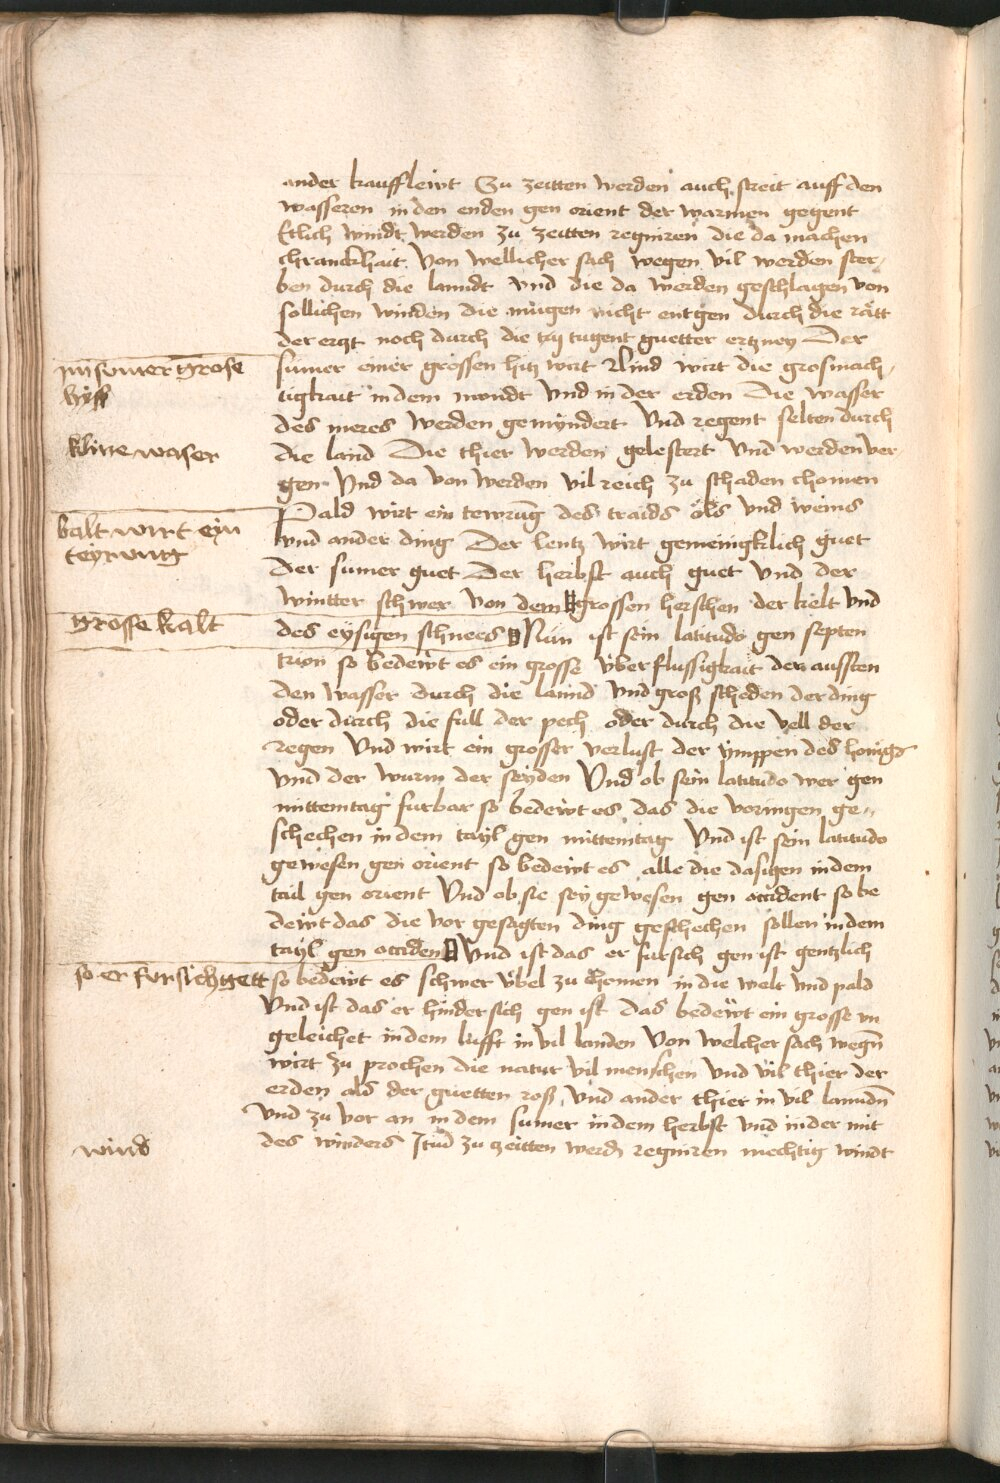 ander kauffleẅt Zu zeitten werden auch streit auff den
wasseren in den enden gen orient der warmen gegent
Etlich windt werden zu zeitten regniren die da machen
chranckhait Von wellicher sach wegen vil werden ster,
ben durch die lanndt vnd die da werden geschlagen von
sollichen winden die mügen nicht entgen durch die rätt
der erczt noch durch die tugent guetter ertzney Der
im somer grose
hyss
sumer einer grossen hitz wirt Vnd wirt die grosmach,
tigkait in dem mondt vnd in der erden Die wasser
des meres werden gemyndert Vnd regent selten durch
kline waser
die land Die thier werden gelestert Vnd werden ver
gen Vnd da von werden vil reich zu schaden chomen
balt wirt eyn
teyrung
Pald wirt ein tewrung des traids öls vnd weins
vnd ander ding Der lentz wirt gemeinigklich guet
Der sumer guet Der herbst auch guet Vnd der
wintter schwer von dem grossen herschen der kelt Vnd
grosse kalt
des eysigen schnees Nün ist sein latitudo gen septen
trion so bedeẅt es ein grosse vber flussigkait der aussten
den wasser durch die lannd vnd groß scheden der ding
oder durch die full der pech oder durch die vell der
regen Vnd wirt ein grosser verlust der ymppen des honigs
vnd der wurm der seyden Vnd ob sein latitudo wer gen
mittemtag furbar so bedewt es das die voringen ge,,
schechen in dem tayl gen mittemtag Vnd ist sein latitudo
gewesen gen orient so bedewt es alle die dasigen in dem
tail gen orient Vnd ob sie sey gewesen gen occident so be
dewt das die vor gesagten ding geschechen sollen in dem
tayl gen occident Vnd ist das er fursich gen ist gentzlich
so er fursich gett
so bedewt es schwer vbel zu chomen in die welt vnd pald
Vnd ist das er hinder sich gen ist das bedeẅt ein grosse vn
geleichet in dem lufft in vil landen Von welcher sach wegn̄
wirt zu prochen die natur vil menschen vnd vil thier der
erden als der guetten roß, vnd ander thier in vil lanndn̄
vnd zu vor an in dem sumer in dem herbst vnd in der mit
wind
des winders zu zeitten werdn̄ regniren mechtig windt